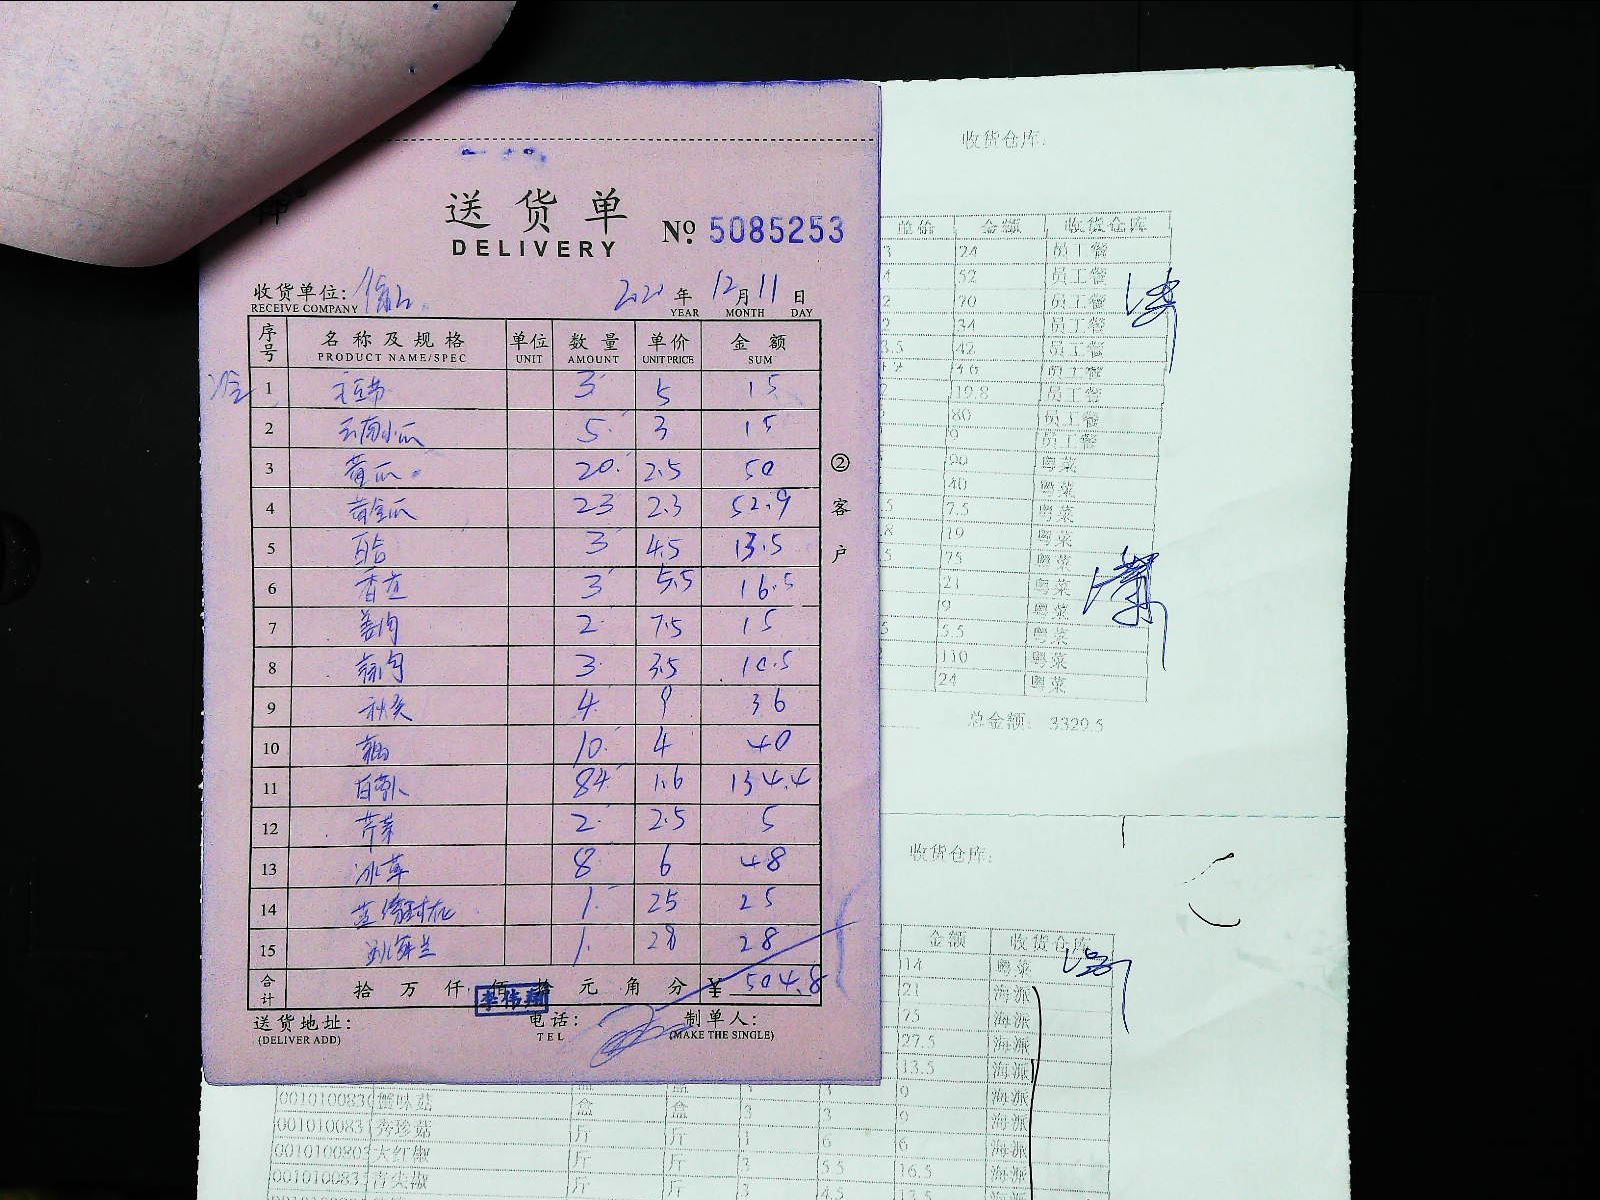 送货单
DELIVERY
№ 5085253
收货单位:
RECEIVE COMPANY
年 12月11日
YEAR MONTH DAY
序号 名称及规格 单位 数量 单价 金额
PRODUCT NAME/SPEC UNIT AMOUNT UNIT PRICE SUM
1 3 5 15
2 云南小瓜 5 3 15
3 黄瓜 20 2.5 50
4 黄金瓜 23 2.3 52.9
5 百合 3 4.5 13.5
6 香芹 3 5.5 16.5
7 姜肉 2 7.5 15
8 蒜肉 3 3.5 10.5
9 秋葵 4 9 36
10 10 4 40
11 白萝卜 84 1.6 134.4
12 芹菜 2 2.5 5
13 冰草 8 6 48
14 1 25 25
15 1 28 28
合计 拾 万 仟 佰 拾 元 角 分 ¥ 504.8
李伟翔
送货地址:
(DELIVER ADD)
电话:
TEL
制单人:
(MAKE THE SINGLE)
②客户
收货仓库:
单价 金额 收货仓库
3 24 员工餐
4 52 员工餐
2 70 员工餐
2 34 员工餐
3.5 42 员工餐
员工餐
2 19.8 员工餐
80 员工餐
9 员工餐
90 粤菜
40 粤菜
.5 7.5 粤菜
.8 19 粤菜
.5 75 粤菜
21 粤菜
9 粤菜
5.5 粤菜
110 粤菜
24 粤菜
总金额: 3329.5
收货仓库:
金额 收货仓库
14 粤菜
21 海派
75 海派
27.5 海派
13.5 海派
9 海派
蟹味菇 盒 盒 3 3 9 海派
秀珍菇 斤 斤 1 6 6 海派
大红椒 斤 斤 3 5.5 16.5 海派
青尖椒 斤 斤 3 4.5 13.5 海派